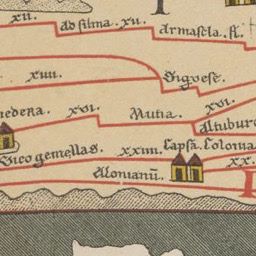 xii. Ad silma. xv. Armascla. fl.
xiiii. Vigvese.
medera. xvi. Mutia. xvi.
Altiburo
Vico gemellas. xxiiii. Capsa. Colonia
Alonianū. xx.